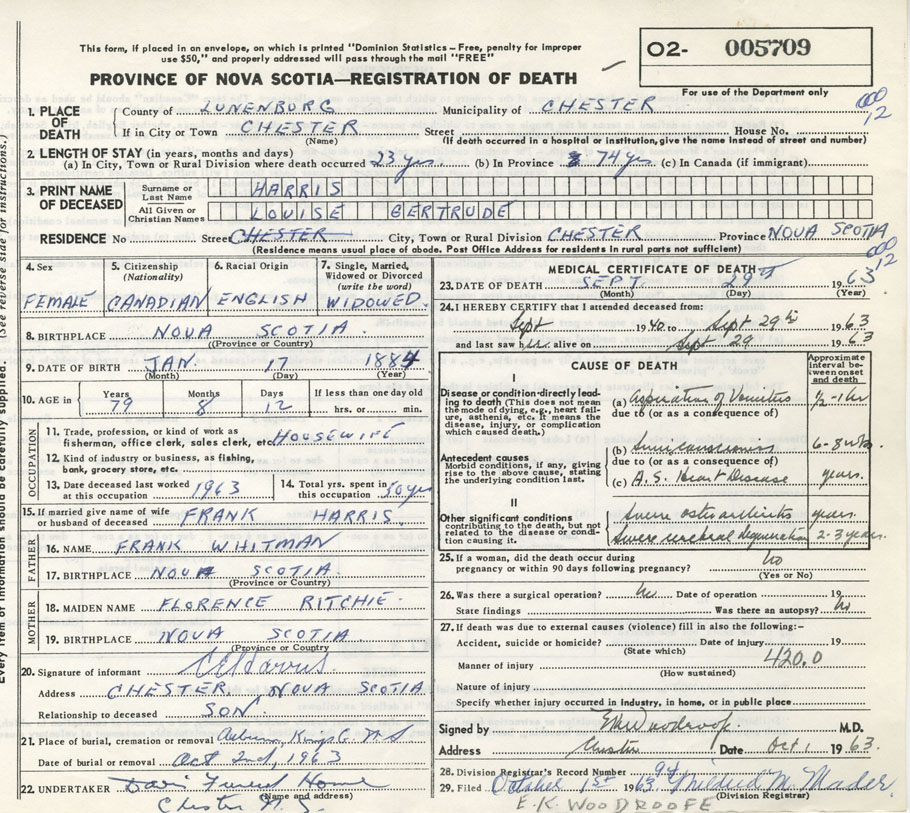 This form, if placed in an envelope, on which is printed "Dominion Statistics - Free, penalty for improper
use $50," and properly addressed will pass through the mail "FREE"
O2- 005709
PROVINCE OF NOVA SCOTIA—REGISTRATION OF DEATH
For use of the Department only
1. PLACE OF DEATH
County of LUNENBURG Municipality of CHESTER
000
12
If in City or Town CHESTER Street House No.
(Name) (If death occurred in a hospital or institution, give the name instead of street and number)
2. LENGTH OF STAY (in years, months and days)
(a) In City, Town or Rural Division where death occurred 23 yrs (b) In Province 74 yrs (c) In Canada (if immigrant)
3. PRINT NAME OF DECEASED
Surname or Last Name HARRIS
All Given or Christian Names LOUISE GERTRUDE
RESIDENCE No Street CHESTER City, Town or Rural Division CHESTER Province NOVA SCOTIA
(Residence means usual place of abode. Post Office Address for residents in rural parts not sufficient)
000
12
4. Sex FEMALE
5. Citizenship (Nationality) CANADIAN
6. Racial Origin ENGLISH
7. Single, Married, Widowed or Divorced (write the word) WIDOWED
8. BIRTHPLACE NOVA SCOTIA
(Province or Country)
9. DATE OF BIRTH JAN. 17 1884
(Month) (Day) (Year)
10. AGE in Years 79 Months 8 Days 12 If less than one day old hrs. or min.
OCCUPATION
11. Trade, profession, or kind of work as
fisherman, office clerk, sales clerk, etc. HOUSEWIFE
12. Kind of industry or business, as fishing,
bank, grocery store, etc.
13. Date deceased last worked at this occupation 1963
14. Total yrs. spent in this occupation 50 yrs
15. If married give name of wife
or husband of deceased FRANK HARRIS
FATHER
16. NAME FRANK WHITMAN
17. BIRTHPLACE NOVA SCOTIA
(Province or Country)
MOTHER
18. MAIDEN NAME FLORENCE RITCHIE
19. BIRTHPLACE NOVA SCOTIA
(Province or Country)
20. Signature of informant
Address CHESTER NOVA SCOTIA
Relationship to deceased SON
21. Place of burial, cremation or removal Auburn, Kings C. N S
Date of burial or removal Oct 2nd, 1963
22. UNDERTAKER Davis Funeral Home
(Name and address)
Chester N.S.
MEDICAL CERTIFICATE OF DEATH
23. DATE OF DEATH SEPT. 29th 1963
(Month) (Day) (Year)
24. I HEREBY CERTIFY that I attended deceased from:
Sept 1940 to Sept 29th 1963
and last saw her alive on Sept 29 1963
CAUSE OF DEATH
Approximate interval between onset and death
I
Disease or condition directly leading
to death (This does not mean
the mode of dying, e.g., heart failure,
asthenia, etc. It means the
disease, injury, or complication
which caused death.)
(a) Aspiration of Vomitus ½-1 hr
due to (or as a consequence of)
Antecedent causes
Morbid conditions, if any, giving
rise to the above cause, stating
the underlying condition last.
(b) 6-8 wks
due to (or as a consequence of)
(c) A.S. Heart Disease years.
II
Other significant conditions
contributing to the death, but not
related to the disease or condition
causing it.
Severe osteoarthritis years.
Severe cerebral Degeneration 2-3 years.
25. If a woman, did the death occur during
pregnancy or within 90 days following pregnancy? No
(Yes or No)
26. Was there a surgical operation? No Date of operation 19
State findings Was there an autopsy? No
27. If death was due to external causes (violence) fill in also the following:-
Accident, suicide or homicide? Date of injury 19
(State which)
Manner of injury 420.0
(How sustained)
Nature of injury
Specify whether injury occurred in industry, in home, or in public place
Signed by EKWoodroofe M.D.
Address Chester Date Oct 1 1963.
28. Division Registrar's Record Number 94
29. Filed October 1st 1963 Mildred M. Mader
(Division Registrar)
E.K. WOODROOFE
(See reverse side for instructions.)
Every item of information should be carefully supplied.